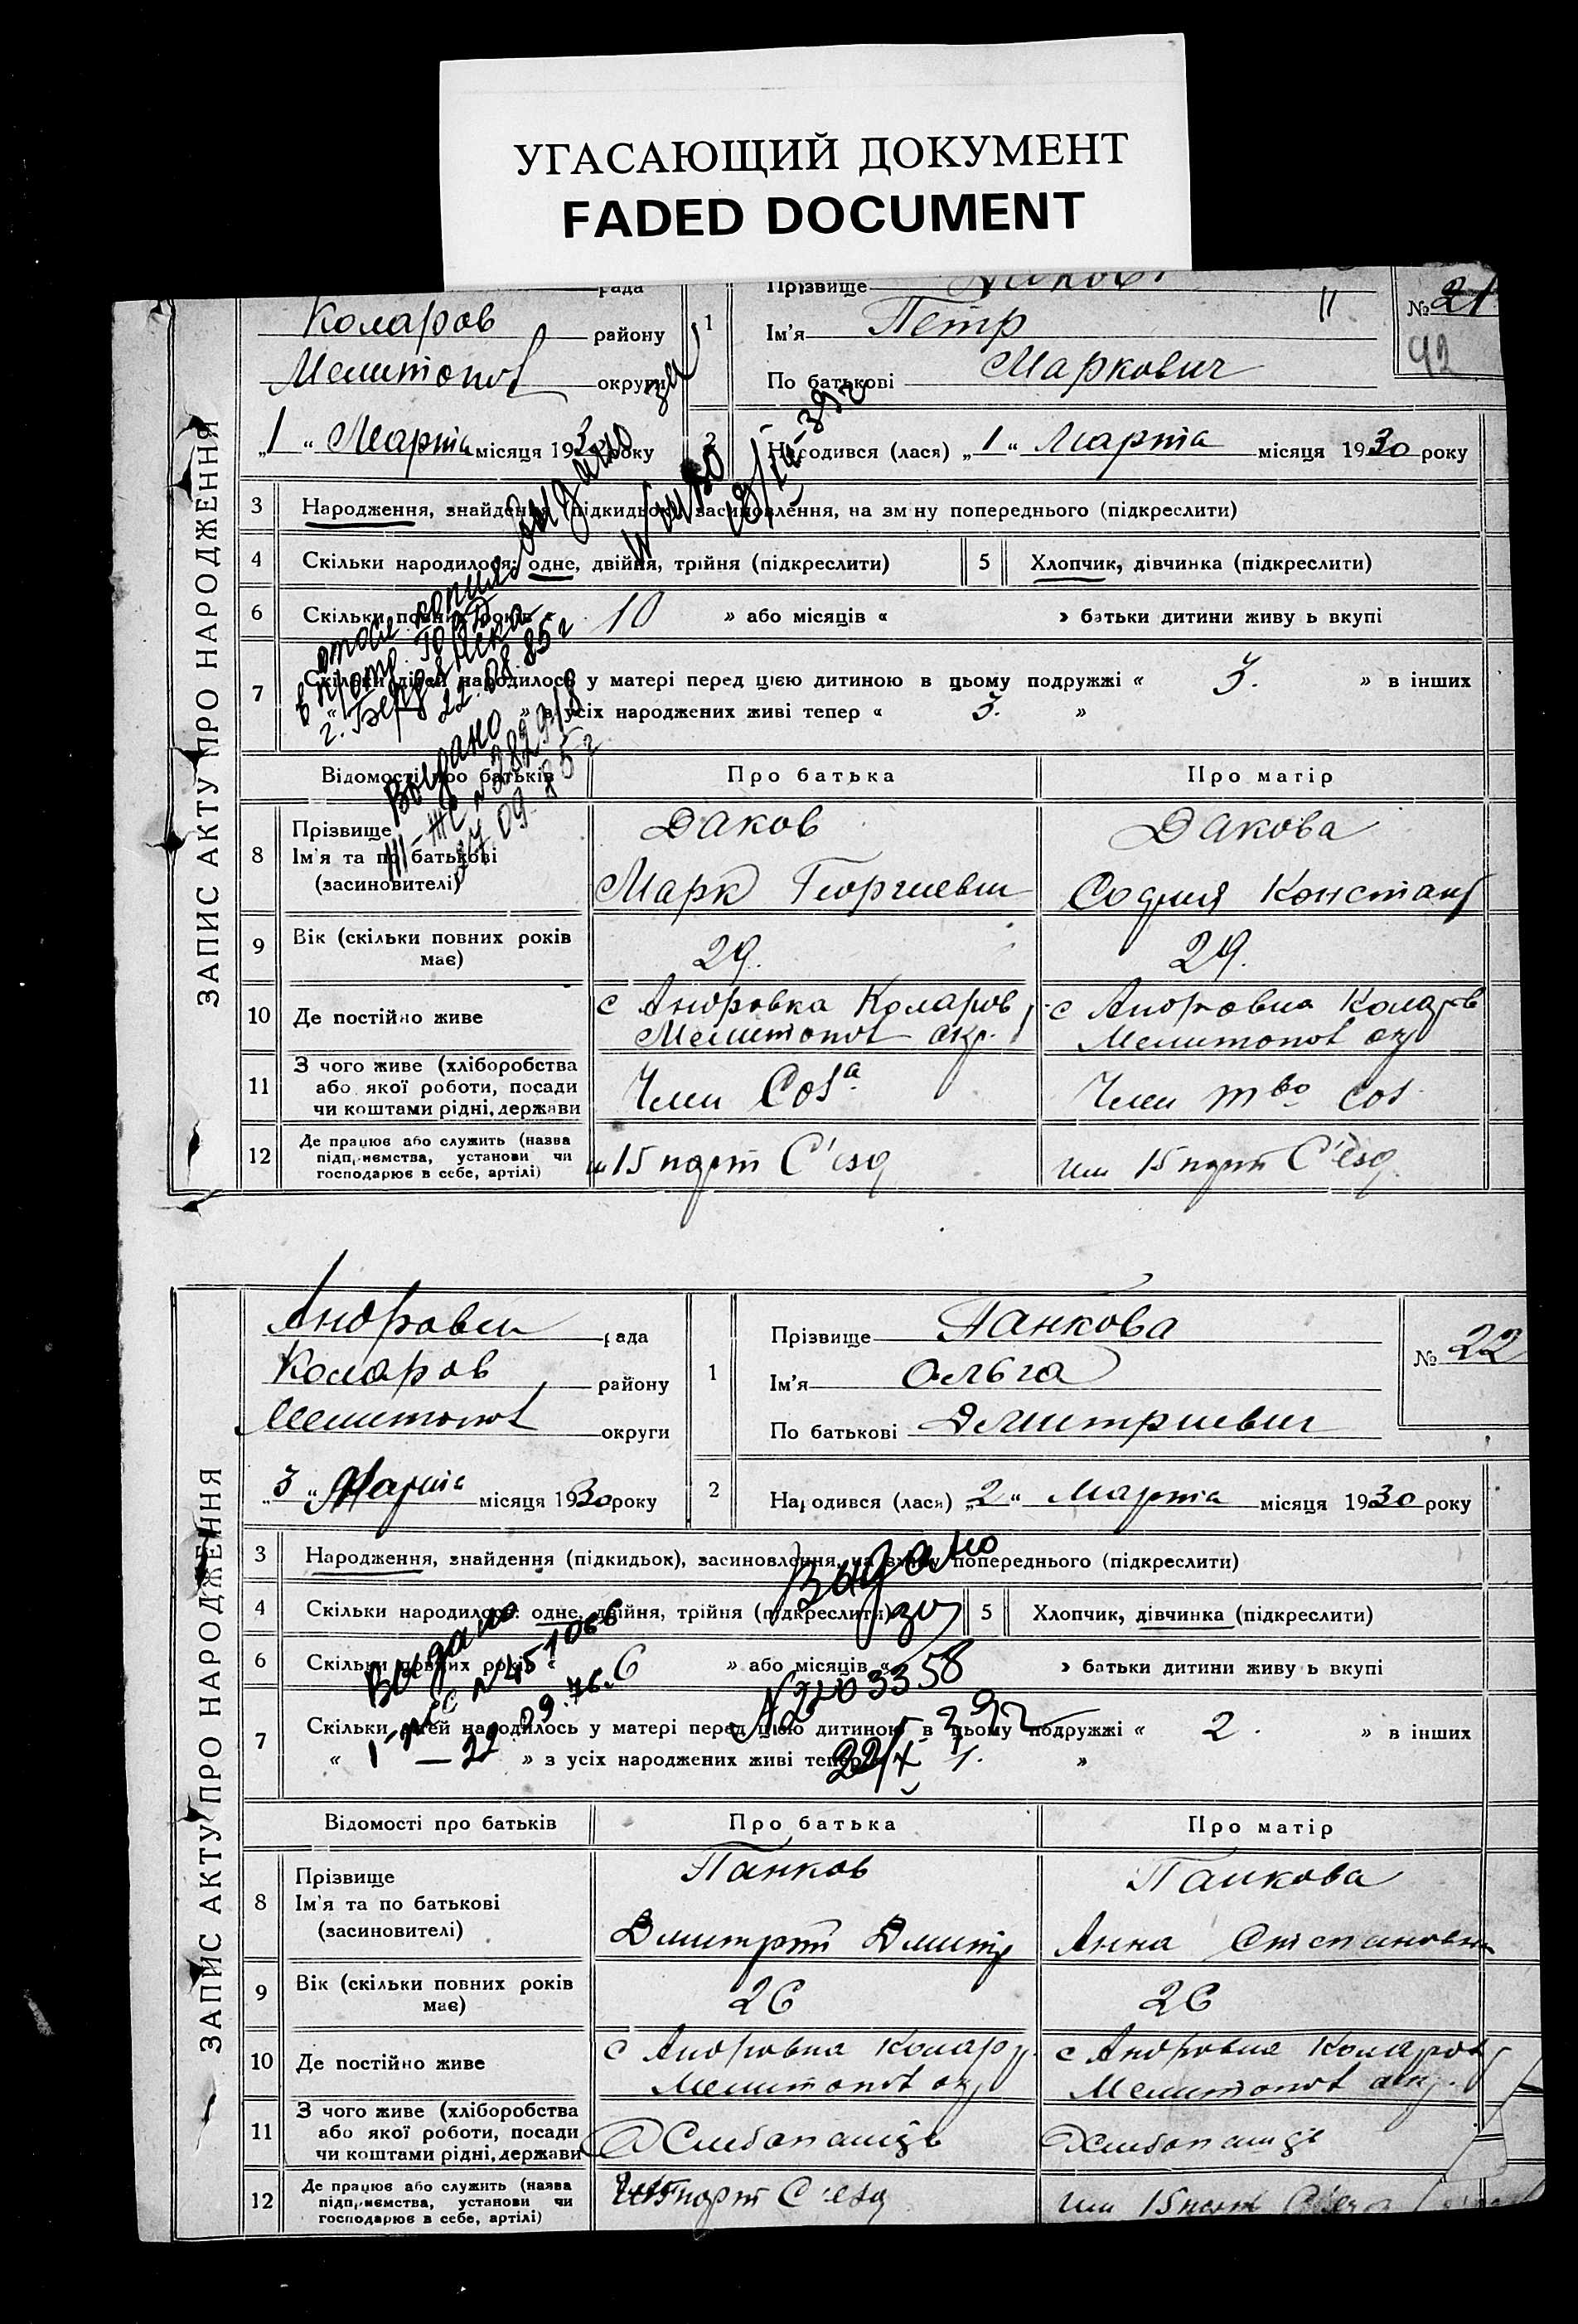 УГАСАЮЩИЙ ДОКУМЕНТ
FADED DOCUMENT
ЗАПИС АКТУ ПРО НАРОДЖЕННЯ
рада
Коларов району
Мелитопол округи
„1“ Марта місяця 1930 року
1
Прізвище
Ім'я Петр
По батькові Маркович
№ 21
42
2
Народився (лася) „1“ Марта місяця 1930 року
3 Народження, знайдення (підкидьок), засиновлення, на зміну попереднього (підкреслити)
4 Скільки народилося: одне, двійня, трійня (підкреслити)
5 Хлопчик, дівчинка (підкреслити)
6 Скільки повних років « 10 » або місяців « » батьки дитини живуть вкупі
7 Скільки дітей народилось у матері перед цією дитиною в цьому подружжі « 3. » в інших
« » з усіх народжених живі тепер « 3. »
копия
г. Бердянска
22.08.85г
Выдано
III-ЖС № 282918
09.85г
Відомості про батьків
Про батька
Про матір
8 Прізвище
Ім'я та по батькові
(засиновителі)
Даков
Марк Георгиевич
Дакова
София Констант
9 Вік (скільки повних років має)
29.
29.
10 Де постійно живе
с Андровка Коларов
Мелитопол окр.
с Андровка Коларов
Мелитопол окр
11 З чого живе (хліборобства
або якої роботи, посади
чи коштами рідні, держави
Член Соза
Член тво соз
12 Де працює або служить (назва
підприємства, установи чи
господарює в себе, артілі)
им 15 парт С'езд
им 15 парт С'езд
ЗАПИС АКТУ ПРО НАРОДЖЕННЯ
Андровск рада
Коларов району
Мелитопол округи
„3“ Марта місяця 1930 року
1
Прізвище Панкова
Ім'я Ольга
По батькові Дмитриевич
№ 22
2
Народився (лася) „2“ Марта місяця 1930 року
3 Народження, знайдення (підкидьок), засиновлення, на зміну попереднього (підкреслити)
4 Скільки народилося: одне, двійня, трійня (підкреслити)
5 Хлопчик, дівчинка (підкреслити)
6 Скільки повних років « 6 » або місяців « » батьки дитини живуть вкупі
7 Скільки дітей народилось у матері перед цією дитиною в цьому подружжі « 2. » в інших
« » з усіх народжених живі тепер « 1. »
Выдано
I-ЖС № 451066
22.09.76.
Выдано
№ 2203358
Відомості про батьків
Про батька
Про матір
8 Прізвище
Ім'я та по батькові
(засиновителі)
Панков
Дмитрий Дмитр
Панкова
Анна Степановн
9 Вік (скільки повних років має)
26
26
10 Де постійно живе
с Андровка Колар р.
Мелитопол окр
с Андровка Коларов
Мелитопол окр.
11 З чого живе (хліборобства
або якої роботи, посади
чи коштами рідні, держави
12 Де працює або служить (назва
підприємства, установи чи
господарює в себе, артілі)
парт С'езд
им 15 парт С'езд